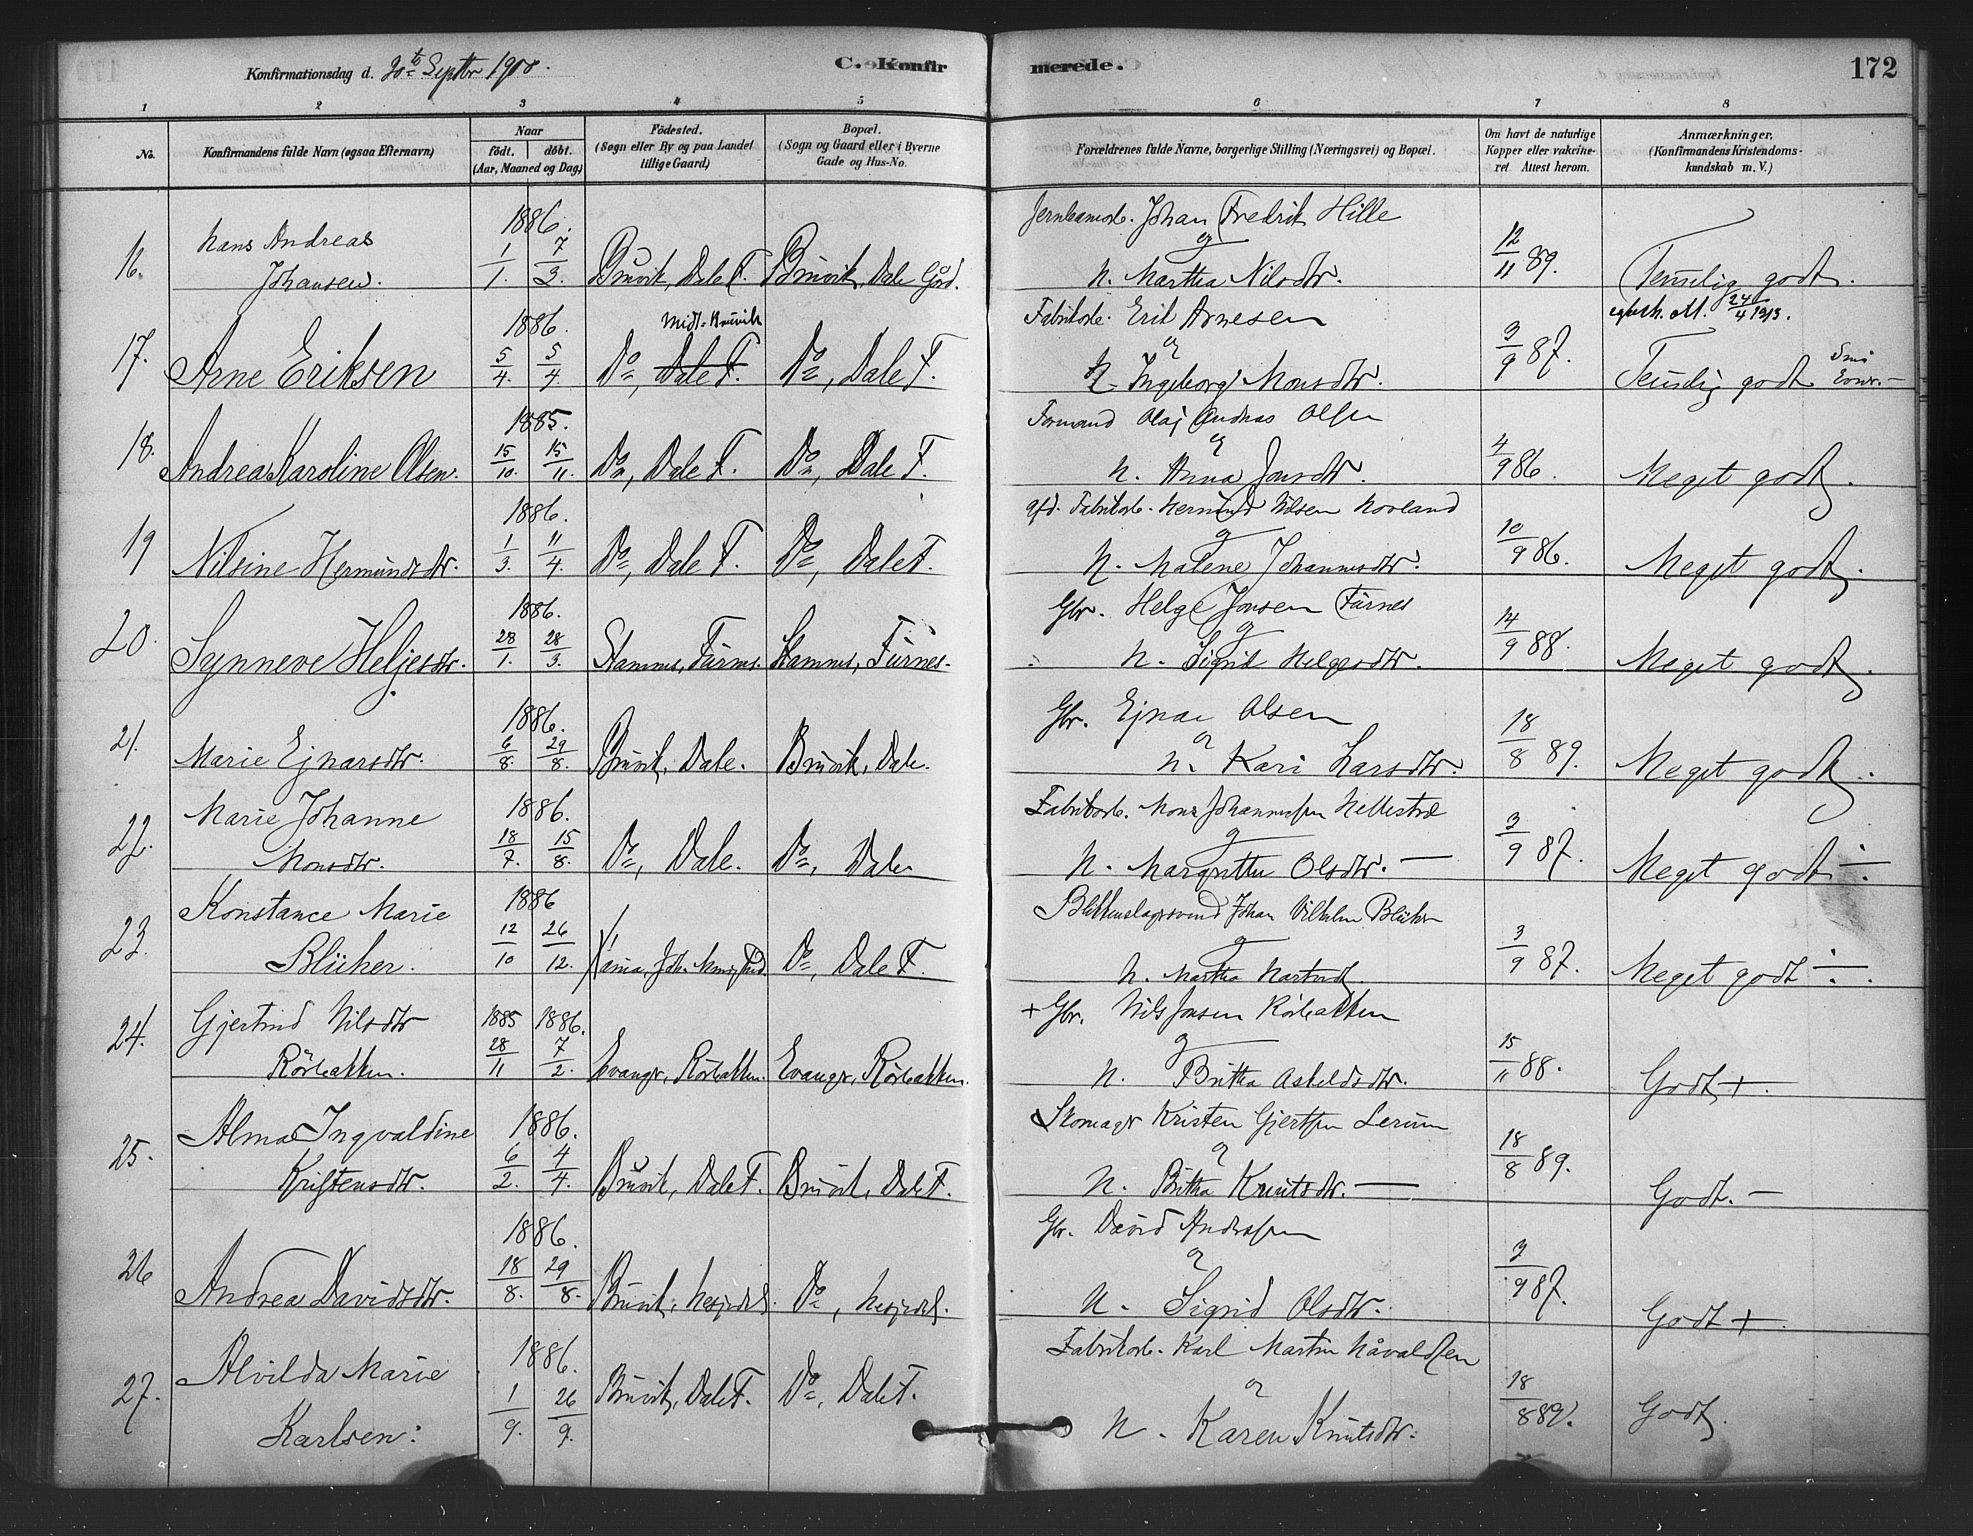 Konfirmationsdag d. 30te Septbr 1900.
C. Konfirmerede.
172
1 2 3 4 5 6 7 8
No.
Konfirmandens fulde Navn (ogsaa Efternavn)
Naar
födt. döbt.
(Aar, Maaned og Dag)
Födested.
(Sogn eller By og paa Landet
tillige Gaard)
Bopæl.
(Sogn og Gaard eller i Byerne
Gade og Hus-No.
Forældrenes fulde Navne, borgerlige Stilling (Næringsvei) og Bopæl.
Om havt de naturlige
Kopper eller vakcine-
ret Attest herom.
Anmærkninger.
(Konfirmandens Kristendoms-
kundskab m. V.)
16. Hans Andreas
Johansen.
1886.
1/1. 7/3.
Bruvik, Dale F. Bruvik, Dale Gård.
Johan Fredrik Hille
og
H. Martha Nilsdtr.
12/11 89.
Temelig godt.
24/4 1913.
17. Arne Eriksen
1886.
5/4. 5/4
Midt-Bruvik
Do, Dale F. Do, Dale F.
Fabrikarb. Erik Arnesen
og
H. Ingeborg Monsdtr.
3/9 87.
Temelig godt
18. Andrea Karoline Olsen.
1885.
15/10. 15/11.
Do, Dale F. Do, Dale F.
Formand Olaf Andreas Olsen
og
H. Anna Jonsdtr.
4/9 86.
Meget godt.
19 Nilsine Hermundsdtr.
1886.
1/3. 11/4.
Do, Dale F. Do, Dale F.
Fabrikarb. Hermund Nilsen Hovland
og
H. Malene Johannesdtr.
10/9 86.
Meget godt.
20. Synneve Heljesdtr.
1886.
28/1. 28/3.
Stamnes, Furnes. Stamnes, Furnes.
Gbr. Helge Jonsen Furnes
og
H. Sigrid Helgesdtr.
14/9 88.
Meget godt.
21. Marie Ejnarsdtr.
1886.
6/8. 29/8.
Bruvik, Dale. Bruvik, Dale.
Gbr. Ejnar Olsen
og
H. Kari Larsdtr.
18/8 89.
Meget godt.
22. Marie Johanne
Monsdtr.
1886.
18/7. 15/8.
Do, Dale. Do, Dale
Fabrikarb. Mons Johannessen Hellestræ
og
H. Margrethe Olsdtr. —
3/9 87.
Meget godt ÷.
23. Konstance Marie
Blücher.
1886
12/10 26/12.
Do, Dale F.
Blikkenslagersvend Johan Vilhelm Blücher
og
H. Martha
3/9 87.
Meget godt ÷.
24. Gjertrud Nilsdtr
Rörbakken.
1885 1886.
28/11 7/2.
Evanger, Rörbakken. Evanger, Rörbakken.
+ Gbr. Nils Jonsen Rörbakken
og
H. Britha Askeldsdtr.
15/11 88.
Godt +.
25. Alma Ingvaldine
Kristensdtr.
1886.
6/2. 4/4.
Bruvik, Dale F. Bruvik, Dale F.
Skomager Kristen Gjertsen Lerum
og
H. Britha Knutsdtr. —
18/8 89.
Godt. —
26 Andrea Davidsdtr.
1886.
18/8. 29/8.
Bruvik, Hesjedal. Do, Hesjedal.
Gbr. David Andersen
og
H. Sigrid Olsdtr.
3/9 87.
Godt +.
27. Alvilda Marie
Karlsen.
1886.
1/9. 26/9.
Bruvik, Dale F. Do, Dale F.
Fabrikarb. Karl Martin Håvaldsen
og
H. Karen Knutsdtr.
18/8 89.
Godt.